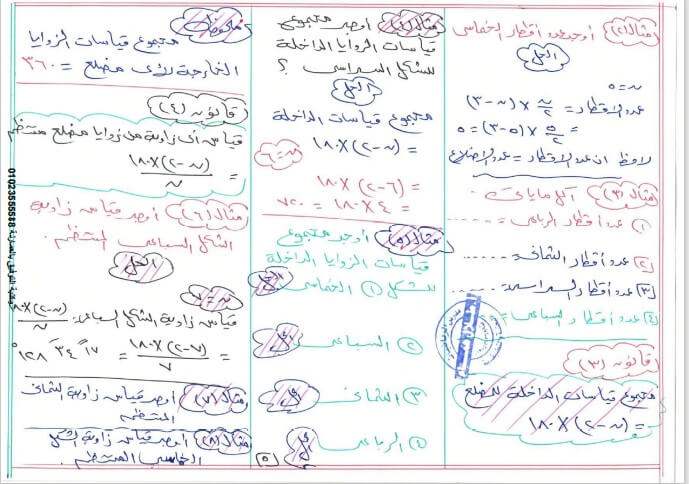 مثال (٢) أوجد عدد أقطار الخماسي
الحل
ن = ٥
عدد الأقطار = ن/٢ × (ن - ٣)
= ٥/٢ × (٥ - ٣) = ٥
لاحظ أن عدد الأقطار = عدد الأضلاع
مثال (٣) أكمل ما يأتى
١) عدد أقطار الرباعى = .....
٢) عدد أقطار الثمانى = .....
٣) عدد أقطار السداسى = .....
٤) عدد أقطار السباعى = .....
قانون (٣)
مجموع قياسات الداخلة للمضلع
= (ن - ٢) × ١٨٠
مثال (٤) أوجد مجموع
قياسات الزوايا الداخلة
للشكل السداسى ؟
الحل
مجموع قياسات الداخلة
= (ن - ٢) × ١٨٠
ن = ٦
(٦ - ٢) × ١٨٠
= ٤ × ١٨٠ = ٧٢٠
مثال (٥) أوجد مجموع
قياسات الزوايا الداخلة
للشكل ١) الخماسى
الحل
٢) السباعى
الحل
٣) الثمانى
الحل
٤) الرباعى
الحل
٥
ملحوظات
مجموع قياسات الزوايا
الخارجة لأى مضلع = ٣٦٠
قانون (٤)
قياس أى زاوية من زوايا مضلع منتظم
= (ن - ٢) × ١٨٠ / ن
مثال (٦) أوجد قياس زاوية
الشكل السباعى المنتظم.
الحل
ن = ٧
قياس زاوية الشكل السباعى = (ن - ٢) × ١٨٠ / ن
= (٧ - ٢) × ١٨٠ / ٧ = ١٧ ٣٤ ١٢٨°
مثال (٧) أوجد قياس زاوية الثمانى
المنتظم
مثال (٨) أوجد قياس زاوية الشكل
الخماسى المنتظم.